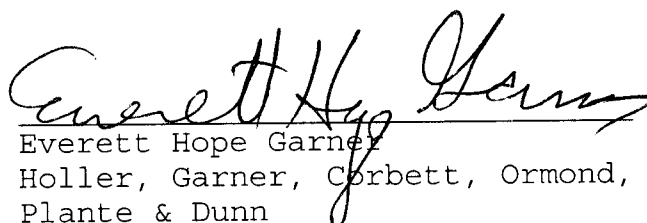 Everett Hope Garner
Everett Hope Garner
Holler, Garner, Corbett, Ormond,
Plante & Dunn